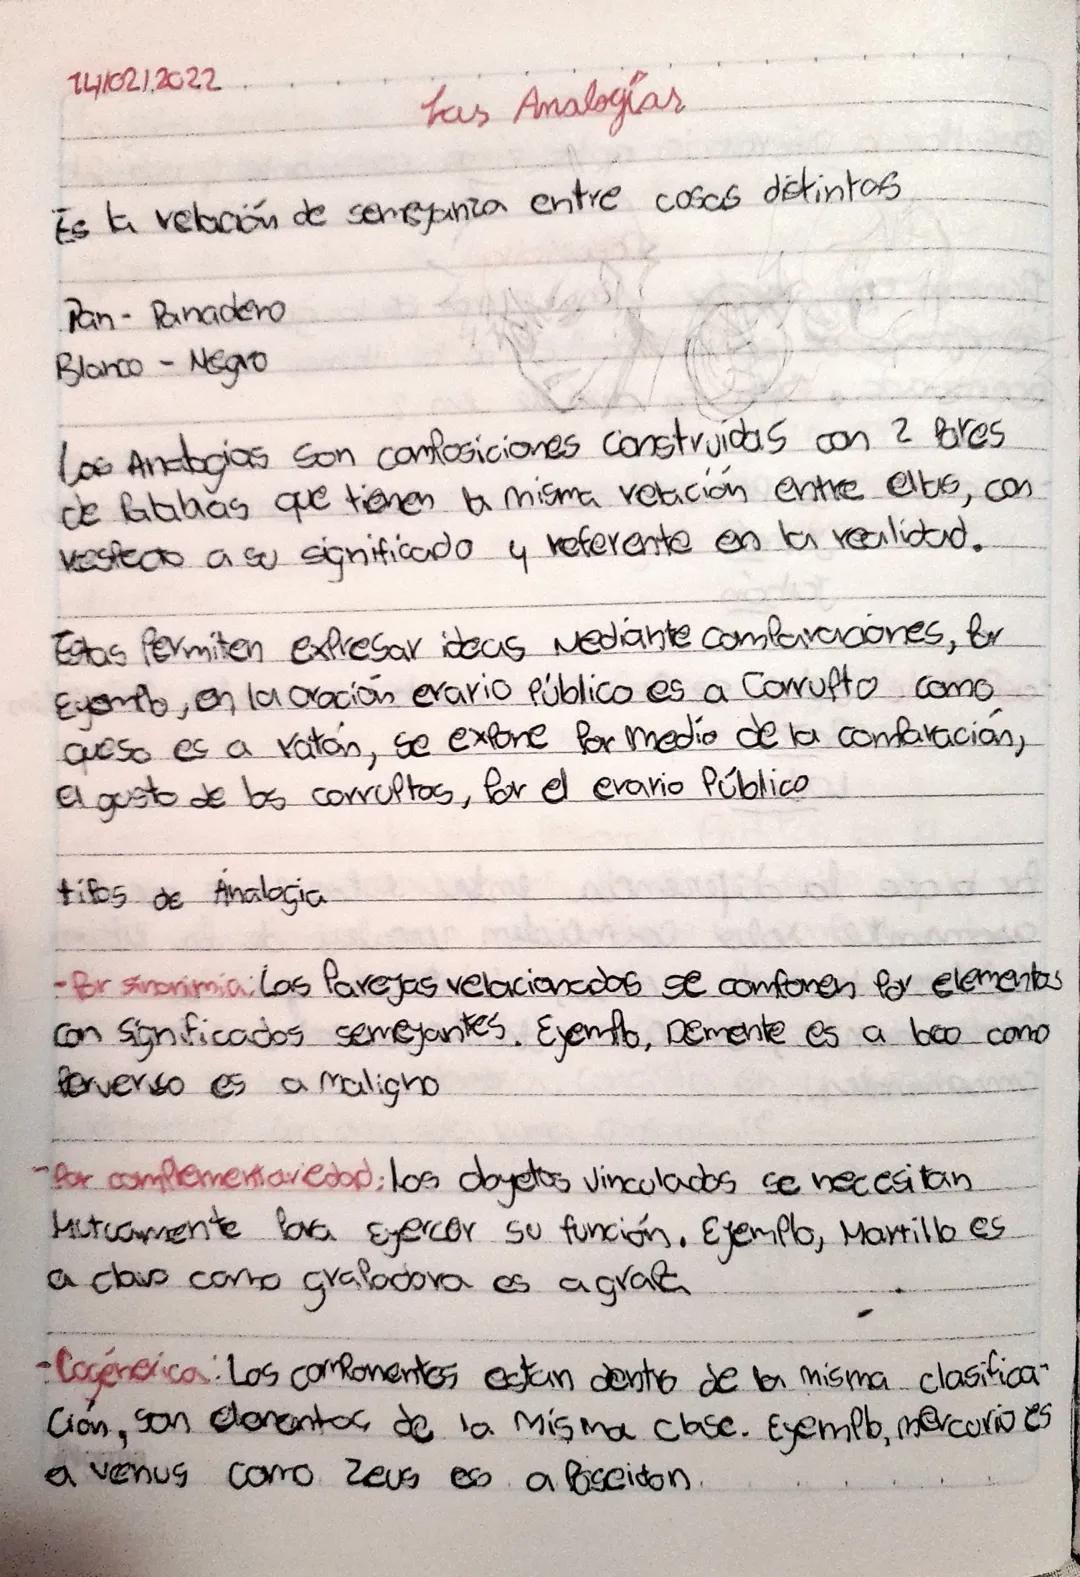 14/02/2022
Las Analogías
Es la relación de semejanza entre cosas distintas
Pan - Panadero
Blanco - Negro
Las Analogias son composiciones construidas con 2 Pares
de Palabras que tienen la misma relación entre ellas, con
respecto a su significado y referente en la realidad.
Estas Permiten expresar ideas Mediante comparaciones, Por
Ejemplo, en la oración erario Público es a Corrupto como
queso es a ratón, se expone Por medio de la comparación,
el gusto de los corruptos, Por el erario Público
tipos de Analogia
- Por sinonimia: Las Parejas relacionadas se componen Por elementos
con significados semejantes. Ejemplo, Demente es a loco como
Perverso es a Maligno
- Por complementariedad: los objetos vinculados se necesitan
Mutuamente Para Ejercer su función. Ejemplo, Martillo es
a clavo como grapadora es a grapa
- Cogénerica: Los componentes estan dentro de la misma clasifica-
ción, son elementos de la Misma clase. Ejemplo, mercurio es
a venus como Zeus es a Poseidon.